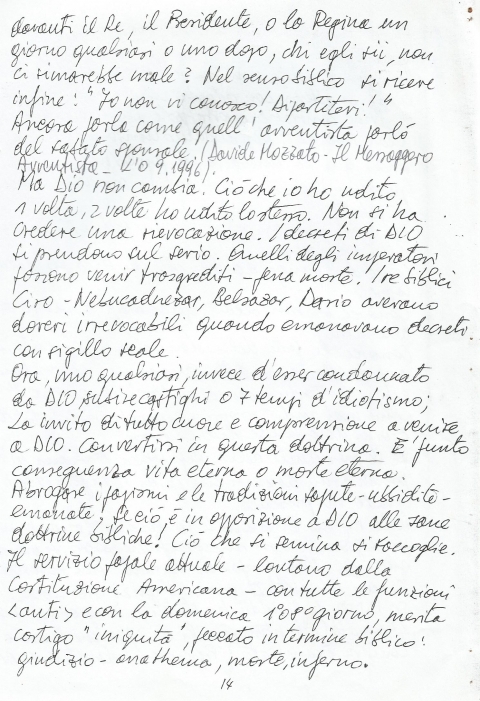 davanti il Re, il Presidente, o la Regina un
giorno qualsiasi o uno dopo, chi egli sii, non
ci rimarebbe male? Nel senso biblico si riceve
infine: "Io non vi conosco! Dipartitevi!"
Ancora parla come quell'avventista parlò
del sabato sponsale! (Davide Mozzato - Il Messaggero
Avventista - 9.1996).
Ma DIO non cambia. Ciò che io ho udito
1 volta, 2 volte ho udito lo stesso. Non si ha
credere una rievocazione. I decreti di DIO
si prendono sul serio. Quelli degli imperatori
possono venir trasgrediti - pena morte. I re biblici
Ciro - Nebucadnezar, Belsazar, Dario avevano
doveri irrevocabili quando emanavano decreti
con sigillo reale.
Ora, uno qualsiasi, invece d'esser condannato
da DIO, subire castighi o 7 tempi d'idiotismo;
Lo invito di tutto cuore e comprensione a venire
a DIO. Convertirsi in questa dottrina. E' punto
conseguenza vita eterna o morte eterna.
Abrogare i papismi e le tradizioni sapute - ubbidite -
emanate, se ciò è in opposizione a DIO alle sane
dottrine bibliche! Ciò che si semina si raccoglie.
Il servizio papale attuale - lontano dalla
Costituzione Americana - con tutte le funzioni
<anti> e con la domenica 1° 8° giorno, merita
castigo "iniquità", peccato in termine biblico:
giudizio - anathema, morte, inferno.
14